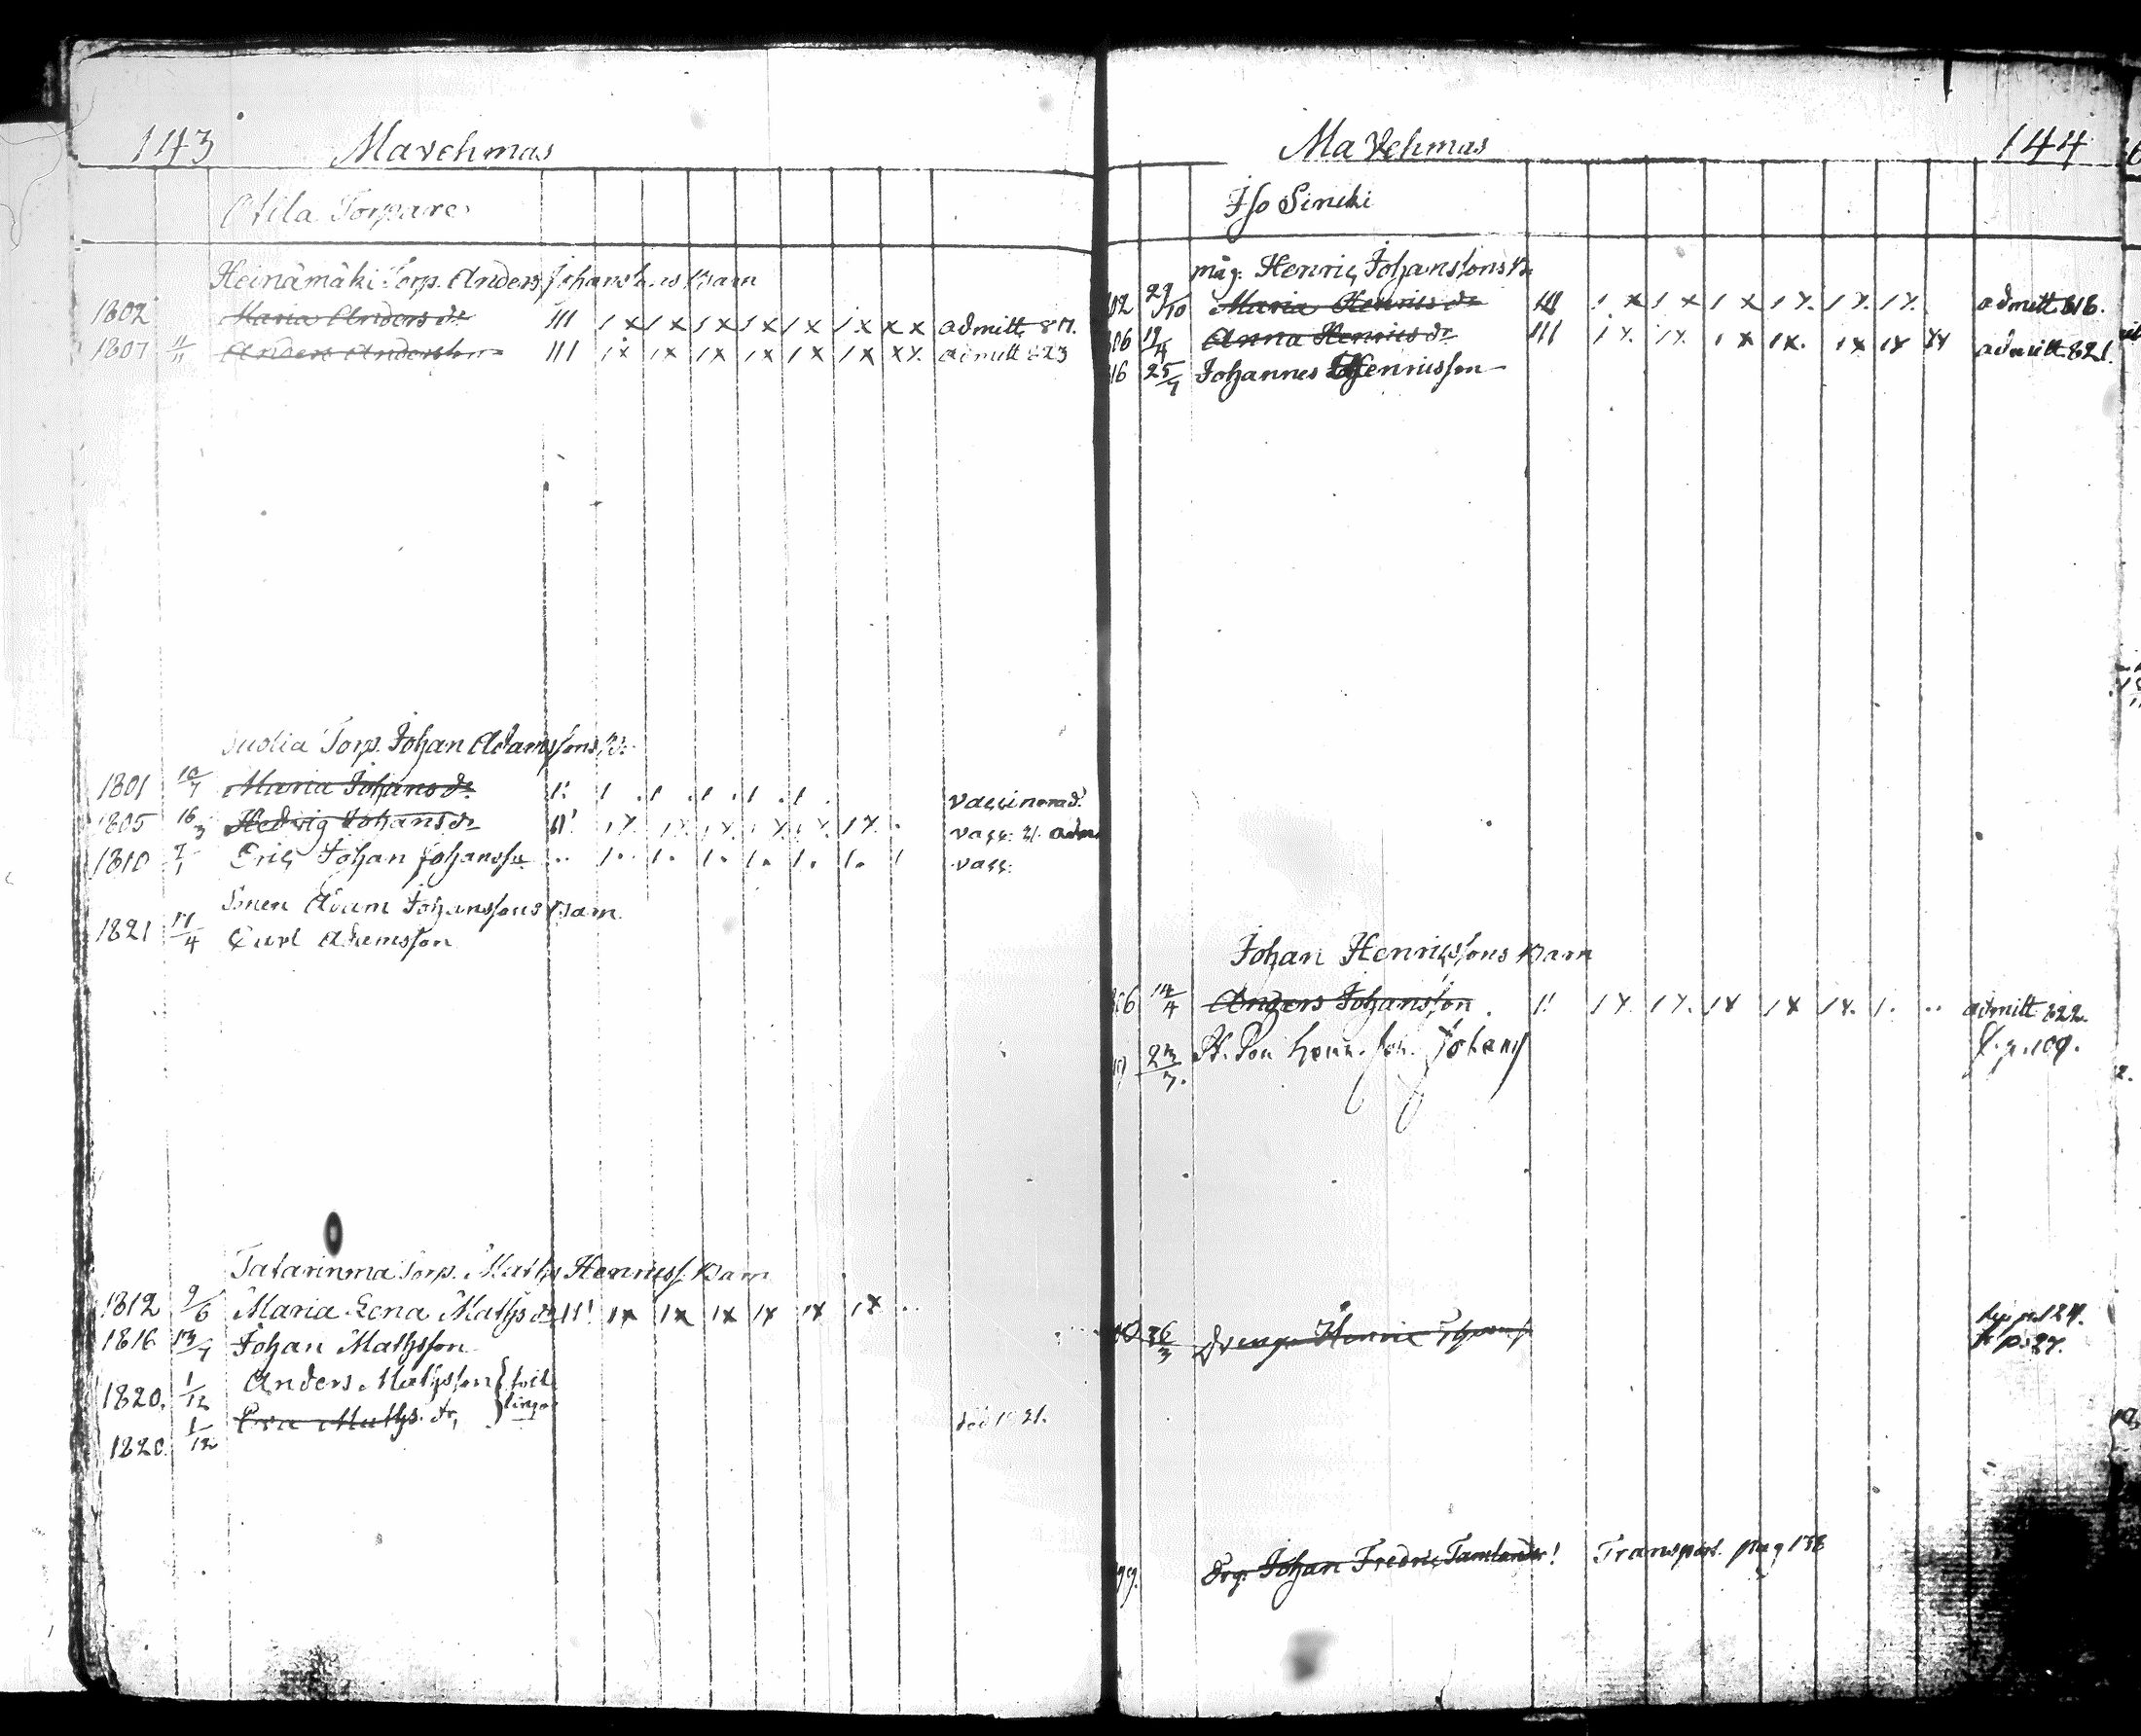 143 Mavehmas
Otila Torpare
Heinämäki Torp. Anders Johanssons Barn
1802 Maria Anders dr III 1 x 1 x 1 x 1 x 1 x 1 x x x admitt 817.
1807 Anders Andersson III 1 x 1 x 1 x 1 x 1 x 1 x x x. admitt 823
Torp. Johan Adamssons B:
1801 10/7 Maria Johans dr 1 1 . 1 . 1 . 1 . 1 . vaccinerad.
1805 16/3 Hedvig Johans dr 1 x. 1 x. 1 x. 1 x. 1 x. 1 x. vacc. 21. adm
1810 7/1 Eric Johan Johanss .. 1 .. 1 . 1 . 1 . 1 . 1 . 1 vacc.
Sonen Adam Johanssons Barn
1821 17/4 Carl Adamsson
Torp. Maths Henricss. Barn
1812 9/6 Maria Lena Maths dr 1 x 1 x 1 x 1 x 1 x 1 x ..
1816 13/9 Johan Mathsson
1820. 1/12 Anders Mathsson } tvil
1820. 1/12 Eva Maths. dr, } lingar död 1821.
Mavehmas 144
Iso Sincki
måg. Henric Johanssons B:
02 29/10 Maria Henrics dr III 1 x 1 x 1 x 1 x. 1 x. 1 x. admitt 818.
06 19/4 Anna Henrics dr III 1 x. 1 x. 1 x 1 x. 1 x 1 x x x admitt 821.
16 25/7 Johannes Henricsson
Johan Henricssons Barn
6 14/4 Anders Johansson . 1 1 x. 1 x. 1 x 1 x 1 x. 1 . .. admitt 822.
23/7. Johans p. 109.
p. 124.
26/3 Drengen Henric p. 27.
99. Drg. Johan Fredric Tamlander! Transport. pag 138